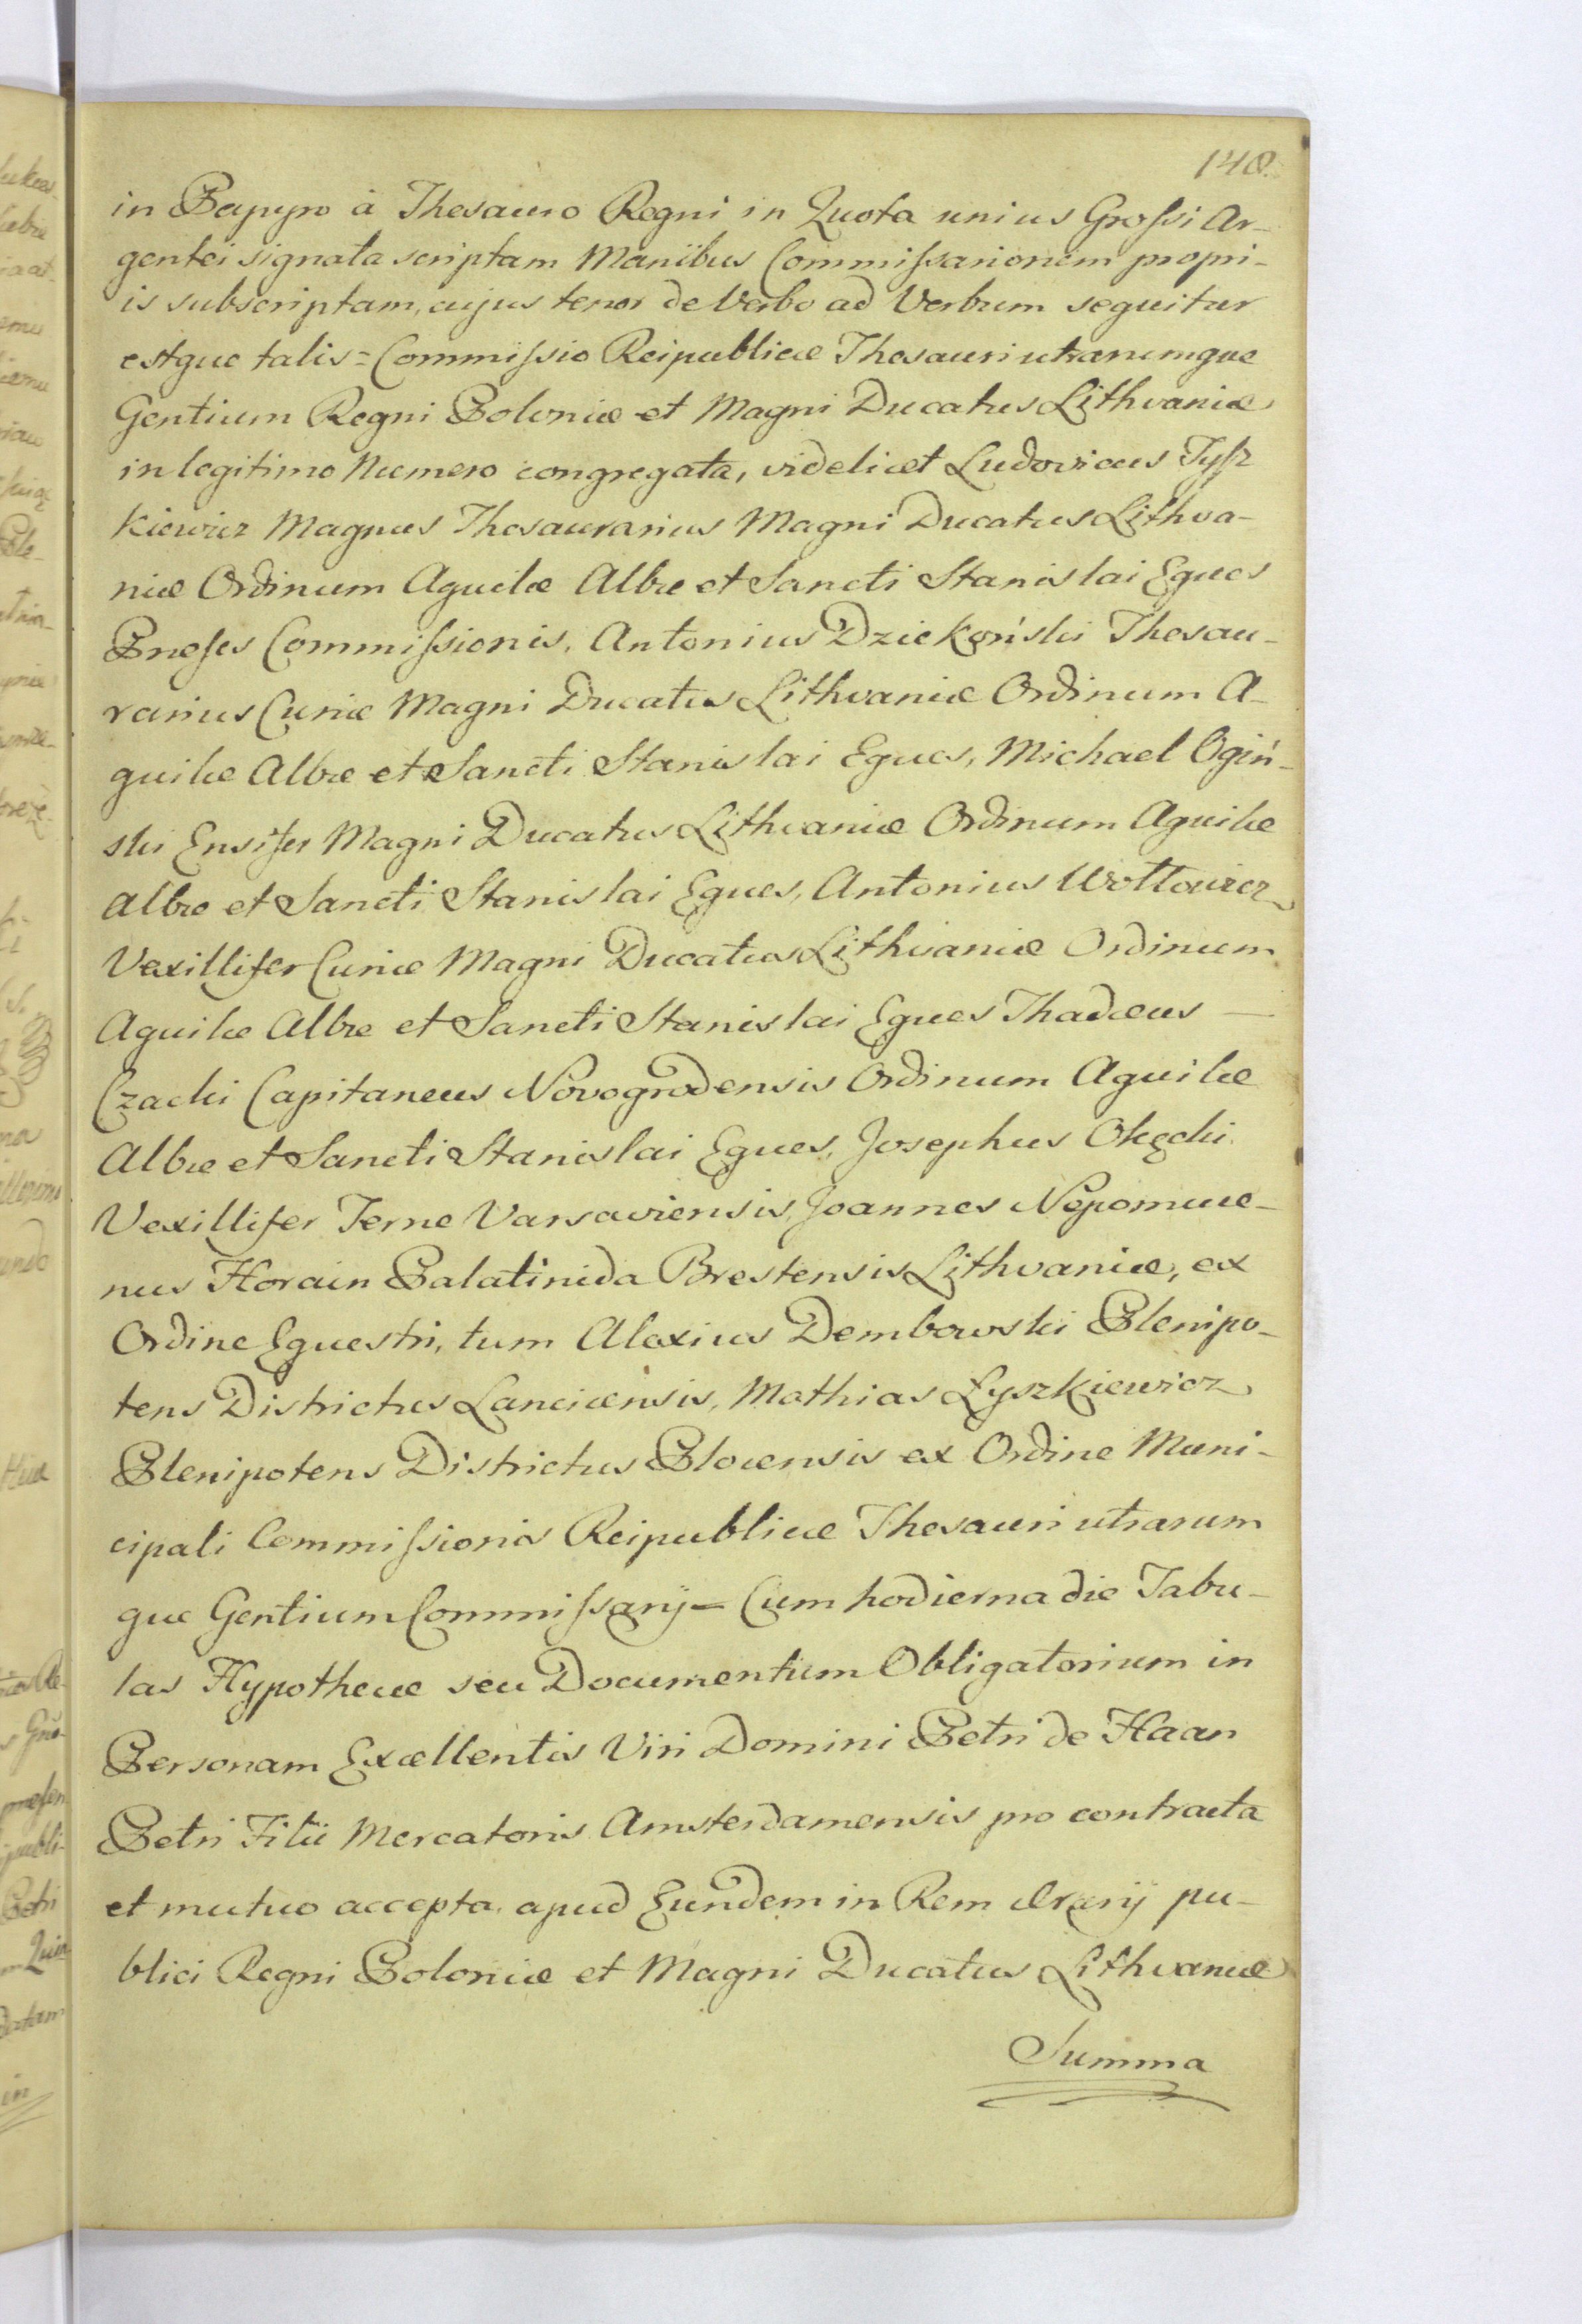 148.
in Papyro à Thesauro Regni in Quota unius Grossi Ar-
gentei signata scriptam Manibus Commissariorum propri-
is subscriptam, cujus tenor de Verbo ad Verbum sequitur
estque talis = Commissio Reipublicæ Thesauri utrarumque
Gentium Regni Poloniæ et Magni Ducatus Lithvaniæ
in legitimo Numero congregata, videlicet Ludovicus Tysz
kiewicz Magnus Thesaurarius Magni Ducatus Lithva-
niæ Ordinum Aquilæ Albæ et Sancti Stanislai Eques
Præses Commissionis, Antonius Dziekoński Thesau-
rarius Curiæ Magni Ducatus Lithvaniæ Ordinum A-
quilæ Albæ et Sancti Stanislai Eques, Michael Ogiń-
ski Ensifer Magni Ducatus Lithvaniæ Ordinum Aquilæ
Albæ et Sancti Stanislai Eques, Antonius Wołłowicz
Vexillifer Curiæ Magni Ducatus Lithvaniæ Ordinum
Aquilæ Albæ et Sancti Stanislai Eques Thadæus —
Czacki Capitaneus Novogrodensis Ordinum Aquilæ
Albæ et Sancti Stanislai Eques, Josephus Olęcki
Vexillifer Terræ Varsaviensis, Joannes Nepomuce-
nus Horain Palatinida Brestensis Lithvaniæ, ex
Ordine Equestri, tum Alexius Dembowski Plenipo-
tens Districtus Lanciciensis, Mathias Łyszkiewicz
Plenipotens Districtus Plocensis ex Ordine Muni-
cipali Commissionis Reipublicæ Thesauri utrarum
que Gentium Commissarij = Cum hodierna die Tabu-
las Hypothecæ seu Documentum Obligatorium in
Personam Excellentis Viri Domini Petri de Haan
Petri Filii Mercatoris Amsterdamensis pro contracta
et mutuo accepta apud Eundem in Rem Ærarij pu-
blici Regni Poloniæ et Magni Ducatus Lithvaniæ
Summa